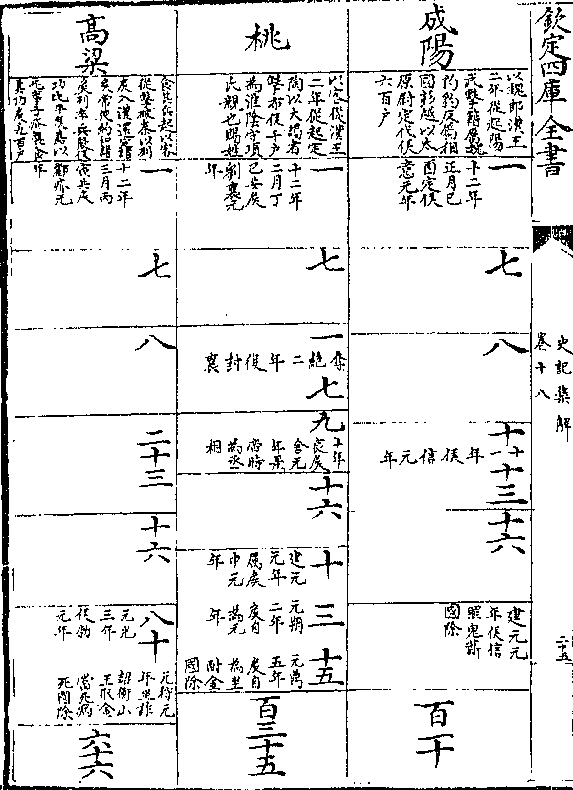 欽定四庫全書
史記集解
卷十八
二十五
成陽
以魏郎漢王
二年從起陽
武擊籍屬魏
豹豹反屬相
國彭越以太
原尉定代侯
六百户
一
十二年
正月乙
酉定侯
意元年
七
八
十
十一
年侯信元年
十三
十六
建元元
年侯信
罪鬼薪
國除
百十
桃
以客從漢王
二年從起定
陶以大謁者
擊布侯千户
為淮陰守項
氏親也賜姓
一
十二年
二月丁
巳安侯
劉襄元
年
七
一
奪絶二年復封襄
七
九
十年
哀侯
舍元
年景
帝時
為丞
相
十六
十
建元
元年
厲侯
申元
年
三
元朔
二年
侯自
為元
年
十五
元鼎
五年
侯自
為坐
酎金
國除
百三十五
高梁
食其兵起以客
從擊破秦以列
侯入漢還定諸
侯常使約和諸
侯列卒兵聚侯
功比平侯嘉以
死事子疥襲食
其功侯九百户
一
十二年
三月丙
寅共侯
酈疥元
年
七
八
二十三
十六
八
元光
三年
侯勃
元年
十
元狩元
年坐詐
詔衡山
王取金
當死病
死國除
六十六